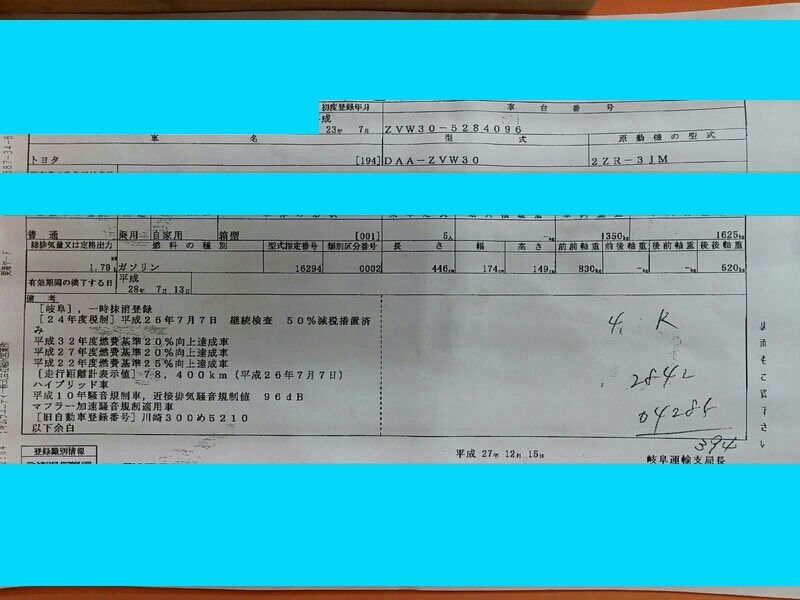 初度登録年月 車台番号
成
23年 7月 ZVW30-5284096
車名 型式 原動機の型式
トヨタ [194] DAA-ZVW30 2ZR-3JM
普通 乗用 自家用 箱型 [001] 5人 -kg 1350kg 1625kg
総排気量又は定格出力 燃料の種別 型式指定番号 類別区分番号 長さ 幅 高さ 前前軸重 前後軸重 後前軸重 後後軸重
1.79 ガソリン 16294 0002 446cm 174cm 149cm 830kg -kg -kg 520kg
有効期間の満了する日 平成
28年 7月 13日
備考
[岐阜],一時抹消登録
[24年度税制]平成26年7月7日 継続検査 50%減税措置済
み
平成32年度燃費基準20%向上達成車
平成27年度燃費基準20%向上達成車
平成22年度燃費基準25%向上達成車
[走行距離計表示値]78,400km(平成26年7月7日)
ハイブリッド車
平成10年騒音規制車,近接排気騒音規制値 96dB
マフラー加速騒音規制適用車
[旧自動車登録番号]川崎300め5210
以下余白
4 K
2842
394
裏面もご覧下さい
登録識別情報
平成 27年 12月 15日
岐阜運輸支局長